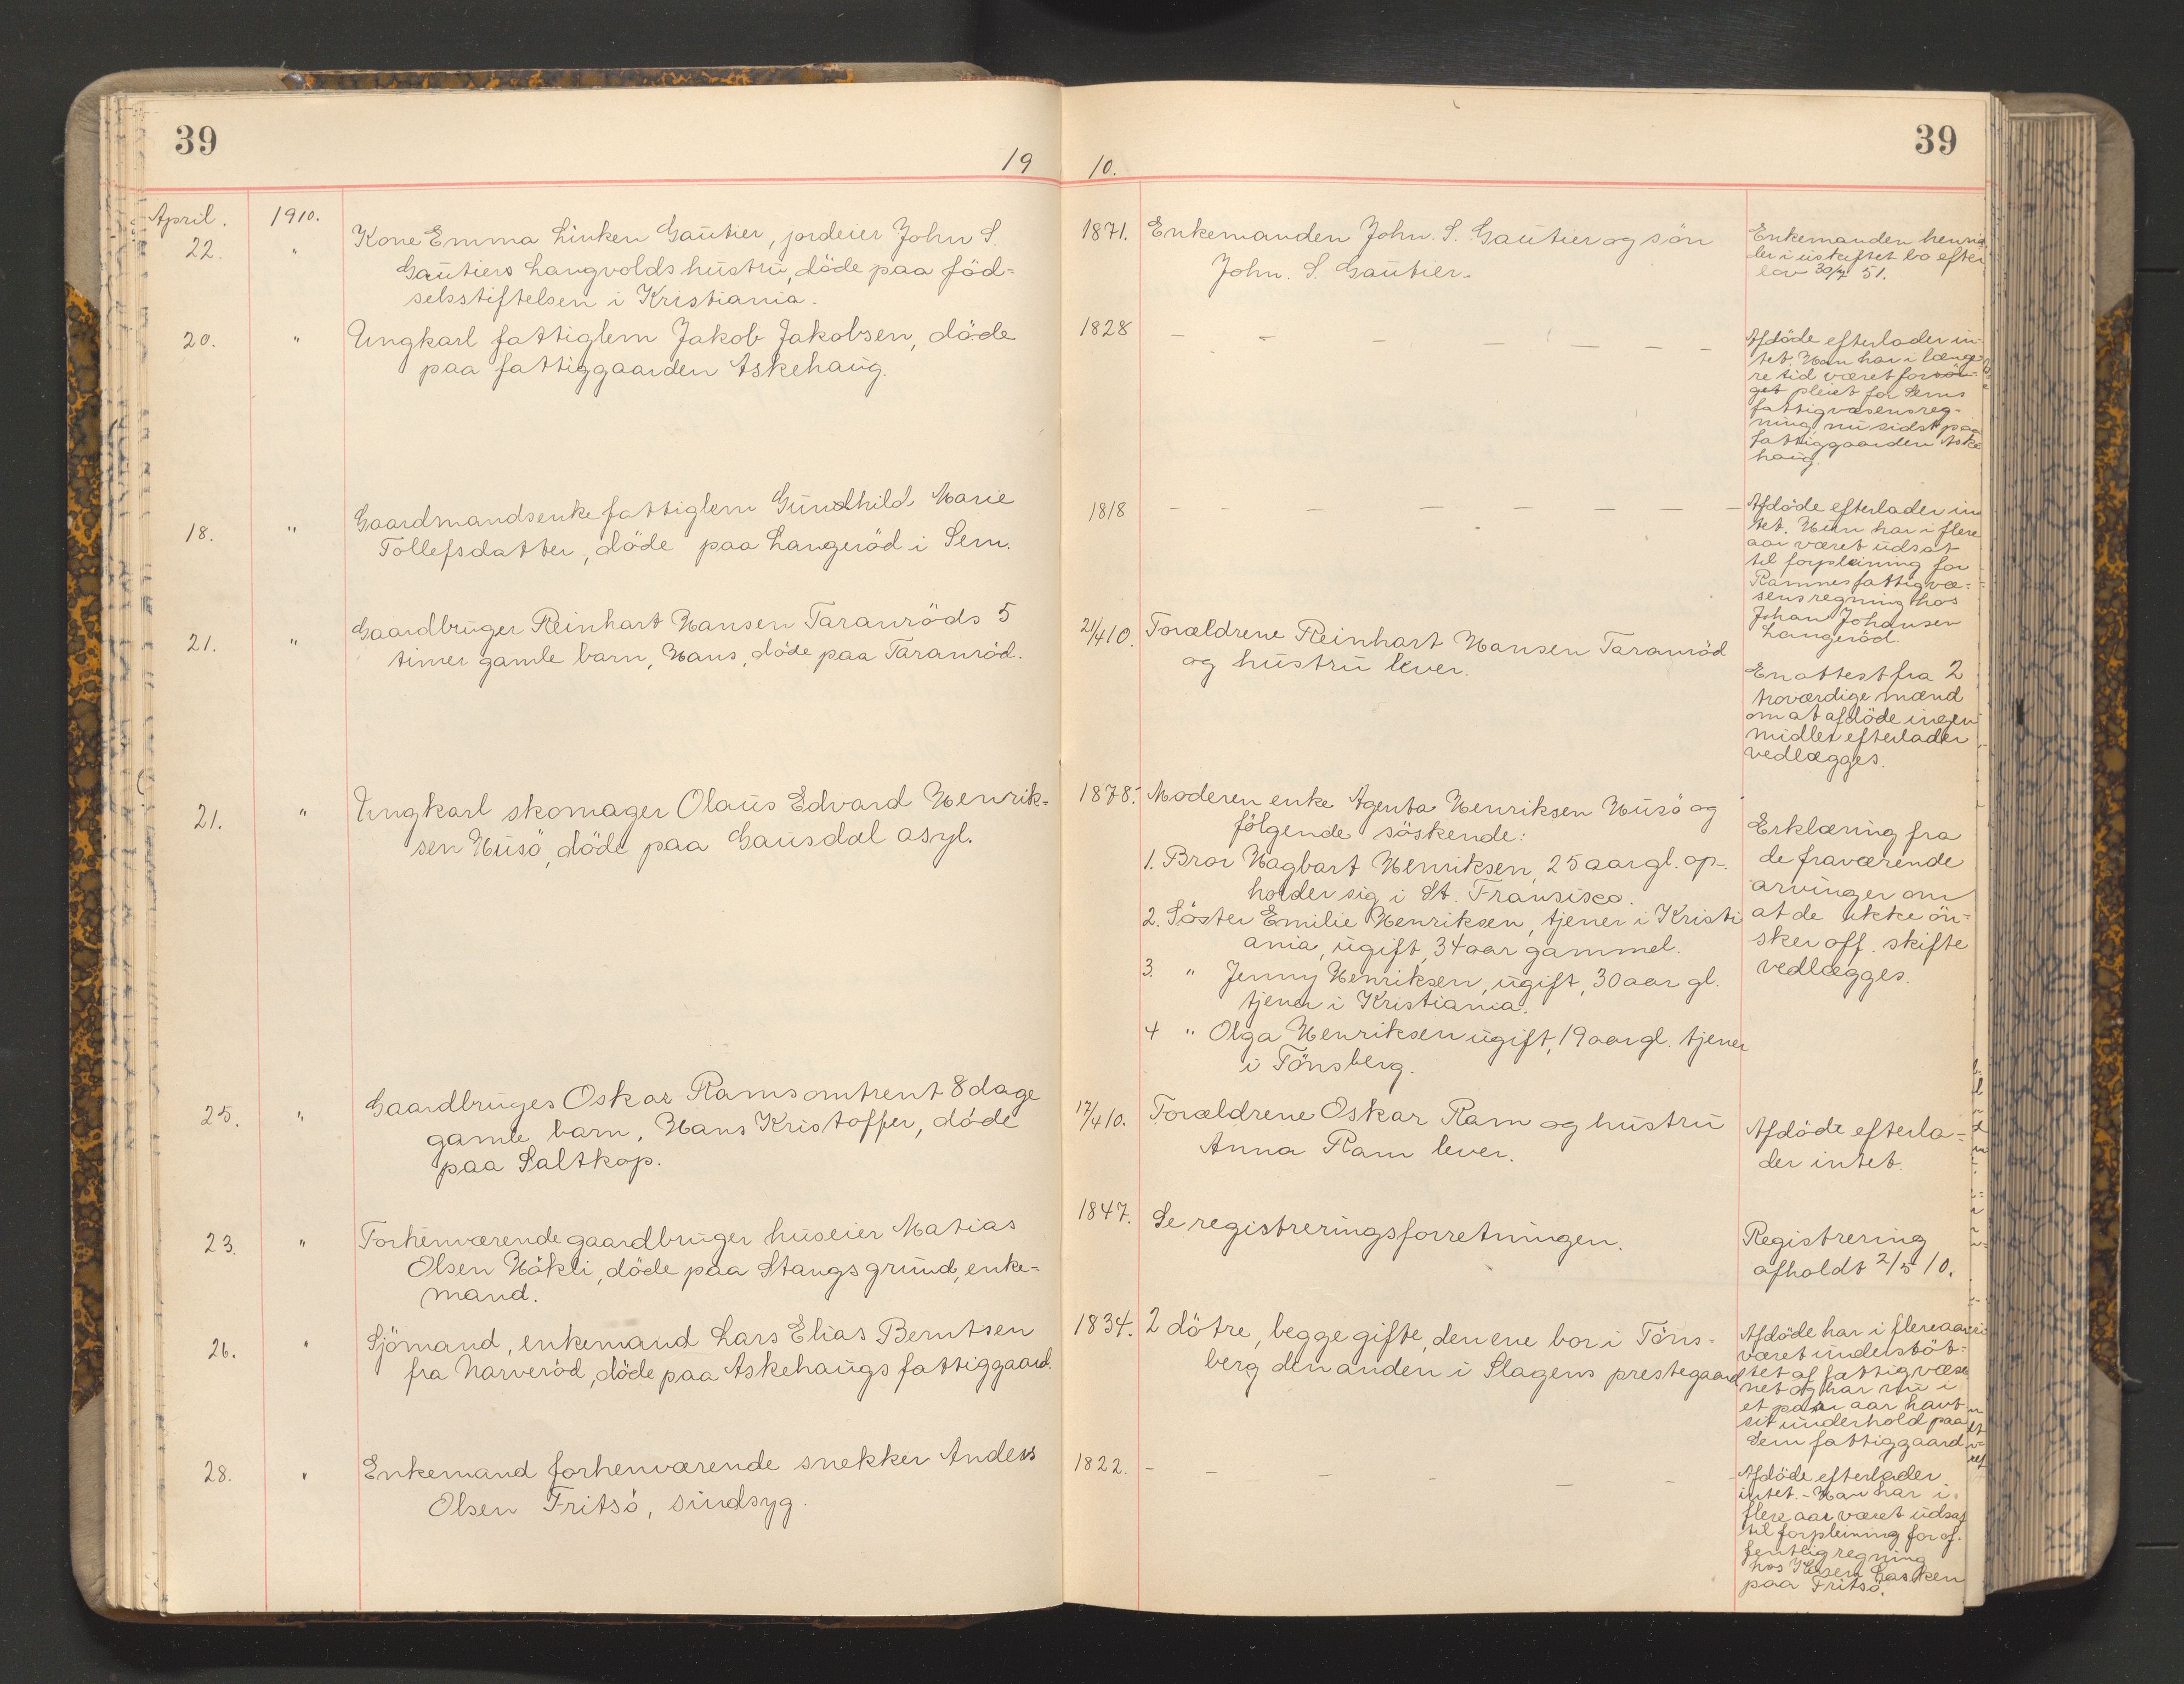 39
39
19
10.
April. 1910.
22. " Kone Emma Linken Gautier, jordeier John S.
Gautiers Langvolds hustru, döde paa föd-
selsstiftelsen i Kristiania.
1871. Enkemanden John. S. Gautier og sön
John. S. Gautier.
Enkemanden hensid
der i uskiftet bo efter
lov 30/7 51.
20. " Ungkarl fattiglem Jakob Jakobsen, döde
paa fattiggaarden Askehaug.
1828 – – – – – – – –
Afdöde efterlader in-
tet. Han har i længe-
re tid været forsör-
get pleiet for Sems
fattigvæsensreg-
ning nu sidst paa
fattiggaarden Aske
haug.
18. " Gaardmandsenke fattiglem Gundhild Marie
Tollefsdatter, döde paa Langeröd i Sem.
1818 – – – – – – – –
Afdöde efterlader in
tet. Hun har i flere
aar været udsat
til forpleining for
Ramnes fattigvæ-
sens regning hos
Johan Johansen
Langeröd.
21. " Gaardbruger Reinhart Hansen Taranröds 5
timer gamle barn, Hans, döde paa Taranröd.
21/4 10. Forældrene Reinhart Hansen Taranröd
og hustru lever.
En attest fra 2
troværdige mænd
om at afdöde ingen
midler efterlader
vedlægges.
21. " Ungkarl skomager Olaus Edvard Henrik-
sen Husö, döde paa Gausdal asyl.
1878. Moderen enke Agenta Henriksen Husö og
fölgende söskende:
1. Bror Hagbart Henriksen, 25 aar gl. op-
holder sig i St. Fransisco.
2. Söster Emilie Henriksen, tjener i Kristi
ania, ugift, 34 aar gammel.
3. " Jenny Henriksen, ugift, 30 aar gl.
tjener i Kristiania.
4 " Olga Henriksen ugift, 19 aar gl. tjener
i Tönsberg.
Erklæring fra
de fraværende
arvinger om
at de ikke ön-
sker off. skifte
vedlægges.
25. " Gaardbruges Oskar Rams omtrent 8 dage
gamle barn, Hans Kristoffer, döde
paa Saltkop.
17/4 10. Forældrene Oskar Ram og hustru
Anna Ram lever.
Afdöde efterla-
der intet.
23. " Forhenværende gaardbruger huseier Matias
Olsen Hökli, döde paa Stangsgrund, enke-
mand.
1847. Se registreringsforretningen.
Registrering
afholdt 2/5 10.
26. " Sjömand, enkemand Lars Elias Berntsen
fra Narveröd, döde paa Askehaugs fattiggaard.
1834. 2 dötre, begge gifte, den ene bor i Töns-
berg den anden i Slagens prestegaard
Afdöde har i flere aar
været understöt-
tet af fattigvæse
net og har nu i
et par aar havt
sit underhold paa
Sem fattiggaard
28. " Enkemand forhenværende snekker Anders
Olsen Fritsö, sindsyg.
1822. – – – – – – –
Afdöde efterlader
intet. - Han har i
flere aar været udsat
til forpleining for of-
fentlig regning
hos
paa Fritsö.